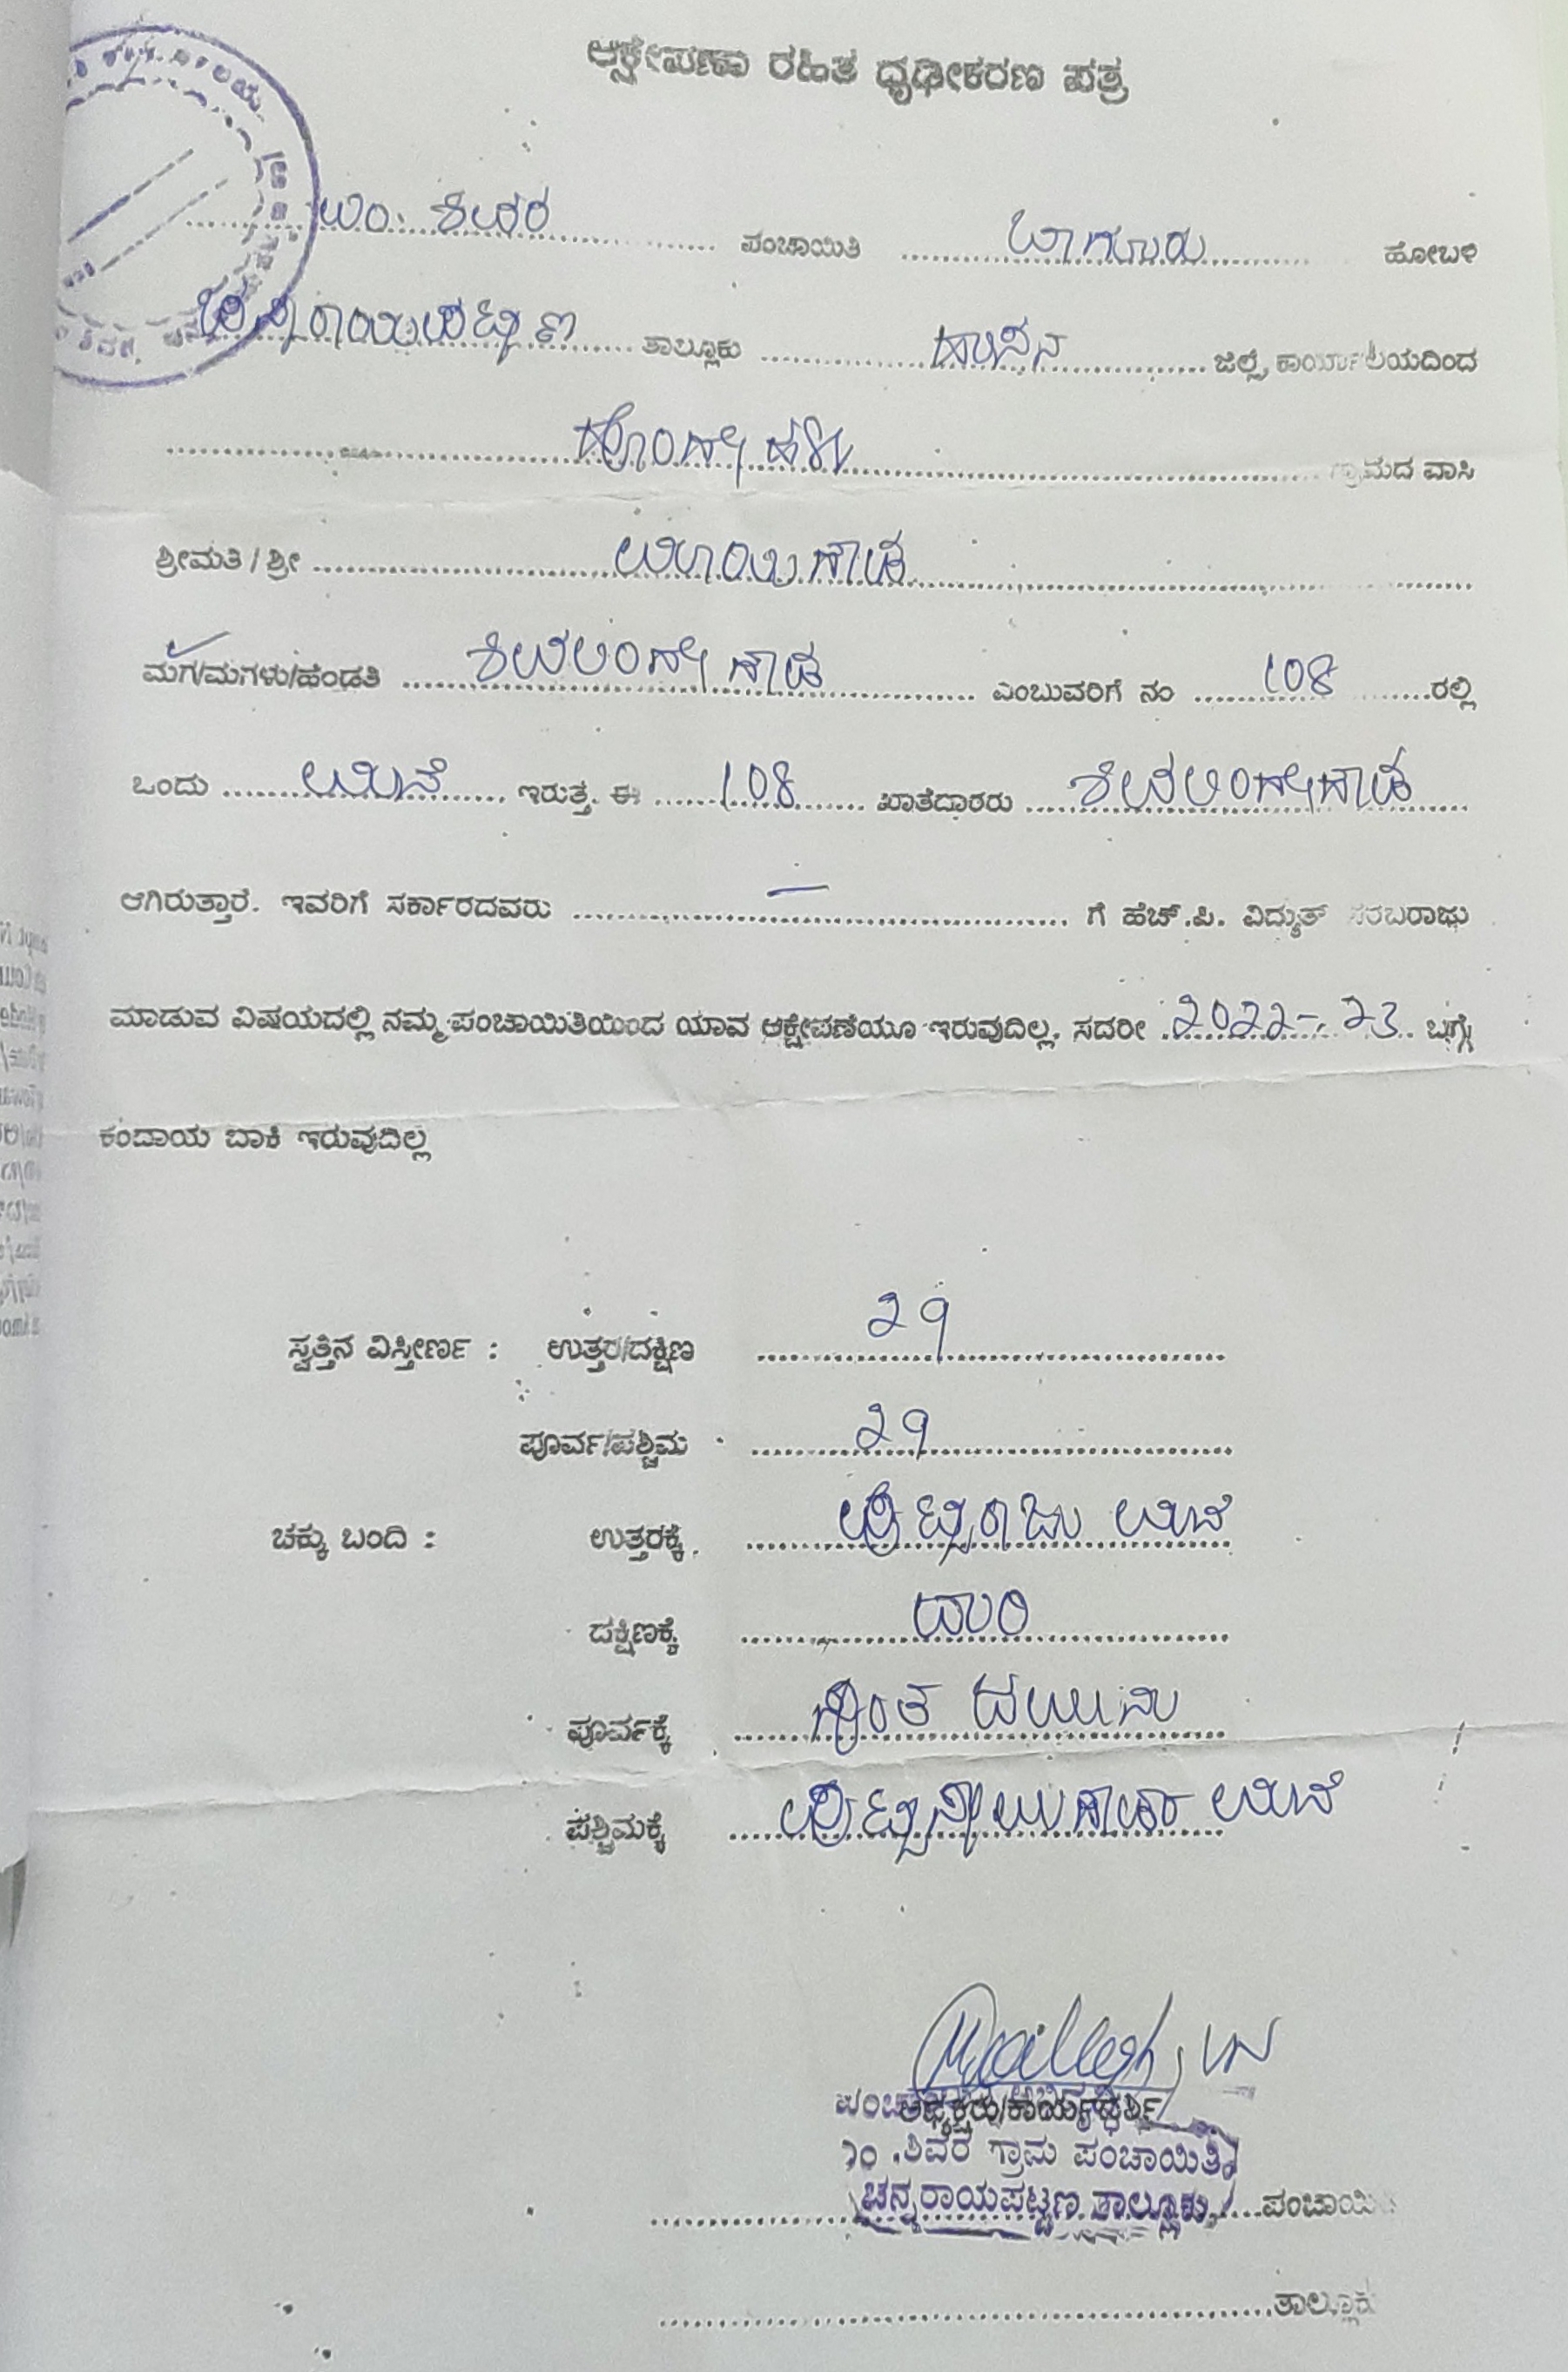 ಆಕ್ಷೇಪಣಾ ರಹಿತ ಧೃಢೀಕರಣ ಪತ್ರ
ಎಂ. ಶಿವರ ಪಂಚಾಯಿತಿ ಬಾಗೂರು ಹೋಬಳಿ
ಚನ್ನರಾಯಪಟ್ಟಣ ತಾಲ್ಲೂಕು ಹಾಸನ ಜಿಲ್ಲೆ, ಕಾರ್ಯಾಲಯದಿಂದ
ಹೊಂಗೇಹಳ್ಳಿ ಗ್ರಾಮದ ವಾಸಿ
ಶ್ರೀಮತಿ / ಶ್ರೀ
ಮಗ/ಮಗಳು/ಹೆಂಡತಿ ಶಿವಲಿಂಗೇಗೌಡ ಎಂಬುವರಿಗೆ ನಂ 108 ರಲ್ಲಿ
ಒಂದು ಮನೆ ಇರುತ್ತೆ. ಈ 108 ಖಾತೆದಾರರು ಶಿವಲಿಂಗೇಗೌಡ
ಆಗಿರುತ್ತಾರೆ. ಇವರಿಗೆ ಸರ್ಕಾರದವರು — ಗೆ ಹೆಚ್.ಪಿ. ವಿದ್ಯುತ್ ಸರಬರಾಜು
ಮಾಡುವ ವಿಷಯದಲ್ಲಿ ನಮ್ಮ ಪಂಚಾಯಿತಿಯಿಂದ ಯಾವ ಆಕ್ಷೇಪಣೆಯೂ ಇರುವುದಿಲ್ಲ. ಸದರೀ 2022-23 ಬಗ್ಗೆ
ಕಂದಾಯ ಬಾಕಿ ಇರುವುದಿಲ್ಲ
ಸ್ವತ್ತಿನ ವಿಸ್ತೀರ್ಣ : ಉತ್ತರ/ದಕ್ಷಿಣ 29
ಪೂರ್ವ/ಪಶ್ಚಿಮ 29
ಚಕ್ಕು ಬಂದಿ : ಉತ್ತರಕ್ಕೆ ಪುಟ್ಟರಾಜು ಮನೆ
ದಕ್ಷಿಣಕ್ಕೆ ದಾರಿ
ಪೂರ್ವಕ್ಕೆ
ಪಶ್ಚಿಮಕ್ಕೆ ಪುಟ್ಟಸ್ವಾಮಿಗೌಡರ ಮನೆ
ಅಧ್ಯಕ್ಷರು/ಕಾರ್ಯದರ್ಶಿ
ಎಂ .ಶಿವರ ಗ್ರಾಮ ಪಂಚಾಯಿತಿ
ಚನ್ನರಾಯಪಟ್ಟಣ ತಾಲ್ಲೂಕು, ಪಂಚಾಯಿತಿ
ತಾಲ್ಲೂಕು